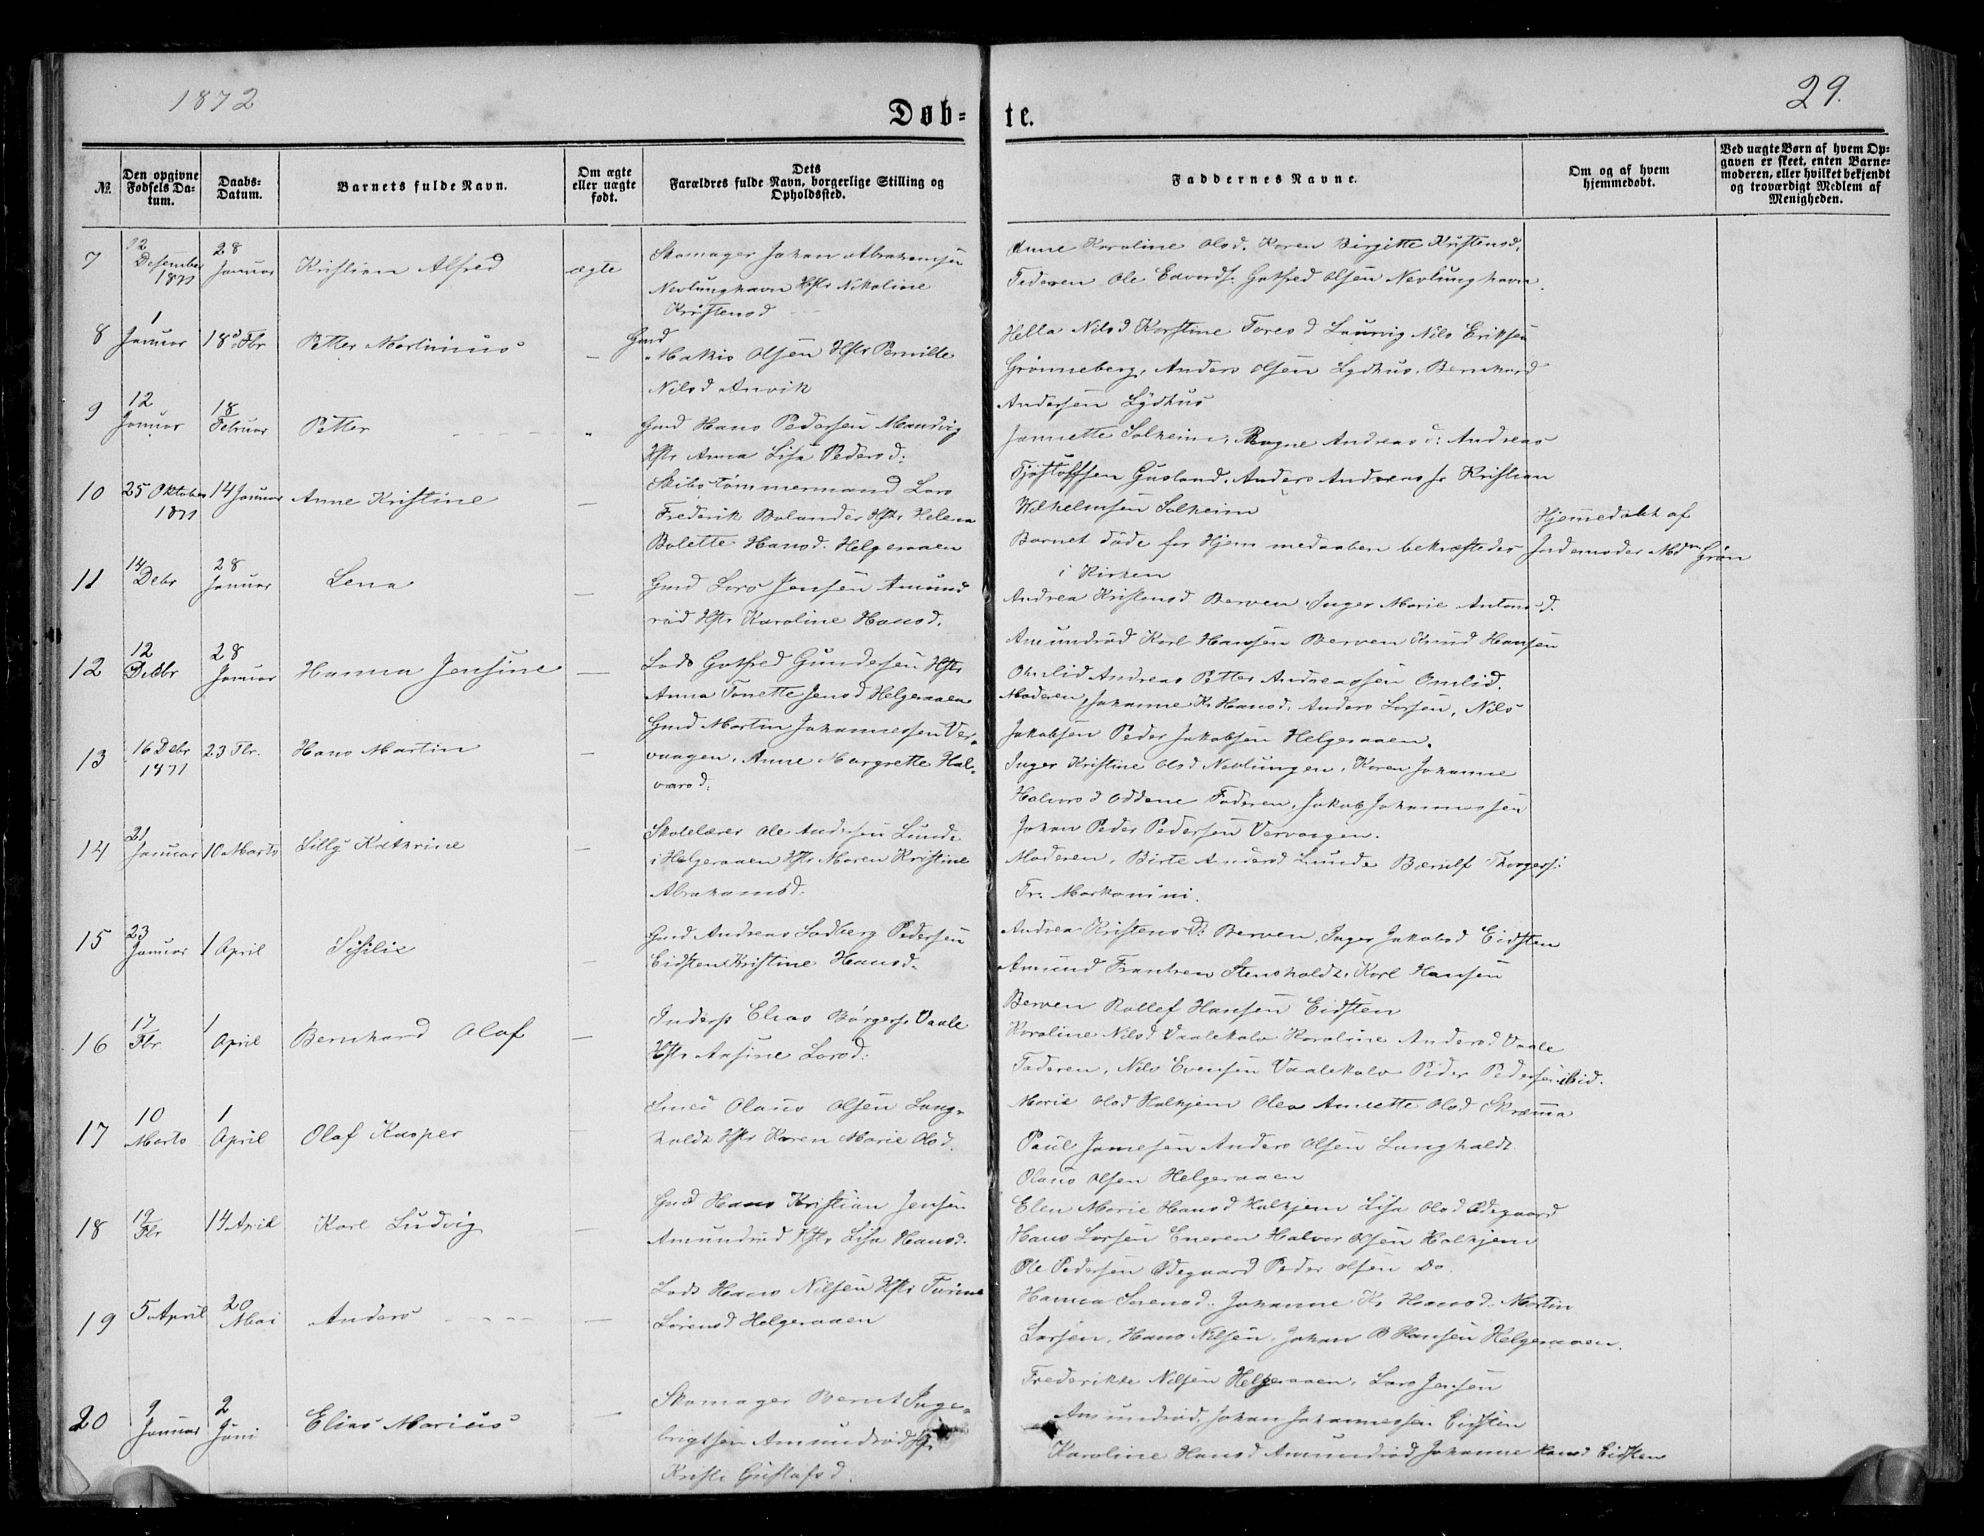 1872
29.
Døb-
te.
№.
Den opgivne
Fødsels Da-
tum.
Daabs-
Datum.
Barnets fulde Navn.
Om ægte
eller uægte
født.
Dets
Farældres fulde Navn, borgerlige Stilling og
Opholdssted.
Faddernes Navne.
Om og af hvem
hjemmedøbt.
Ved uægte Børn af hvem Op-
gaven er skeet, enten Barne-
moderen, eller hvilket bekjendt
og troværdigt Medlem af
Menigheden.
7
12
Desember
1871
28
Januar
Kristian Alfred
ægte
Skomager Johan Abrahamsen
Nevlunghavn Hstr Nikoline
Kristensd
Anne Karoline Olsd. Karen Birgitte Kristensd,
Federen Ole Edvards. Gotfred Olsen Nevlunghavn.
8
1
Januar
18d Fbr
Petter Martinius
—
Gmd
Olsen Hstr Pernille
Nilsd Anvik
Hella Nilsd Karstine Toresd Laurvig Nils Eriksen
Grønneberg, Anders Olsen Lydhus, Bernhard
Andersen Lydhus
9
12
Januar
18
Februar
Petter
"
Gmd Hans Pedersen Mandvig
Hstr Anna Lisa Pedersd:
Jannette Solheim, Ragne Andreasd: Andreas
Tjøstolfsen Gusland, Anders Andreass Kristian
Wilhelmsen Solheim
10
25 Oktober
1871
14 Januar
Anne Kristine
—
Skibstømmermand Lars
Frederik Bolander Hstr Helena
Bolette Hansd. Helgeraaen
Barnet døde før Hjemmedaaben bekræftedes
i Kirken
Hjemmedøbt af
Jordemoder Mdm Grøn
11
14
Debr
28
Januar
Lena
—
Gmd Lars Jensen Amund
rød Hstr Karoline Hansd.
Andrea Kristensd Berven, Inger Marie Antonsd.
Amundrød Karl Hansen Berven Knud Hansen
Omlid Andreas Petter Andreassen Omlid.
12
12
Debr
28
Januar
Hanna Jensine
—
Lods Gotfred Gundersen Hstr
Anna Tonette Jensd Helgeraaen
Moderen, Johanne K. Hansd. Anders Larsen, Nils
Jakobsen Peder Jakobsen Helgeraaen.
13
16 Debr
1871
23 Fbr.
Hans Martin
—
Gmd Martin Johannessen Ver-
vaagen, Anne Margrette Hal-
varsd.
Inger Kristine Olsd Nevlungen, Karen Johanne
Halvorsd Oddene Faderen, Jakob Johannessen
Johan Peder Pedersen Vervaagen.
14
21
Januar
10 Marts
Lilly Kathrine
—
Skolelærer Ole Andersen Lunde
i Helgeraaen Hstr Maren Kristine
Abrahamsd.
Moderen, Birte Andersd Lunde Bærulf Thorgers:
Fr: Markanini.
15
23
Januar
1 April
Sisilie
—
Gmd Andreas Sodberg Pedersen
Eidsten Kristine Hansd.
Andrea Kristensd: Berven, Inger Jakobsd Eidsten
Amund Frantzen Stensholdt, Karl Hansen
Berven Rollef Hansen Eidsten
16
17
Fbr
1
April
Bernhard Olaf
—
Inderst Elias Børges. Vaale
Hstr Ansine Larsd:
Karoline Nilsd Vaalekalv Karoline Andersd Vaale
Faderen, Nils Evensen Vaalekalv Peder Pedersen ibid.
17
10
Marts
1
April
Olaf Kasper
Smed Olaus Olsen Lang-
holdt Hstr Karen Marie Olsd.
Marie Olsd Halkjem Olea Annette Olsd Skræmma
Paul Jamesen Anders Olsen Langholdt
Olaus Olsen Helgeraaen
18
19
Fbr
14 April
Karl Ludvig
—
Gmd Hans Kristian Jensen
Amundrød Hstr Lisa Hansd.
Elen Marie Hansd Halkjem Lisa Olsd Ødegaard
Hans Larsen Eneren Halvor Olsen Halkjem
Ole Pedersen Ødegaard Peder Olsen Do.
19
5 April
20
Mai
Anders
—
Lods Hans Nilsen Hstr Turine
Lørensd Helgeraaen
Hanna Sørensd. Johanne K. Hansd. Martin
Larsen, Hans Nilsen, Johan B Hansen Helgeraaen.
20
9
Januar
2
Juni
Elias Marius
—
Skomager Bernt Inge-
brigtsen Amundrød Hstr
Kristi Gustafsd.
Frederikke Nilsen Helgeraaen, Lars Jensen
Amundrød, Johan Johannessen Eidsten
Karoline Hansd Amundrød Johanne Hansd Eidsten